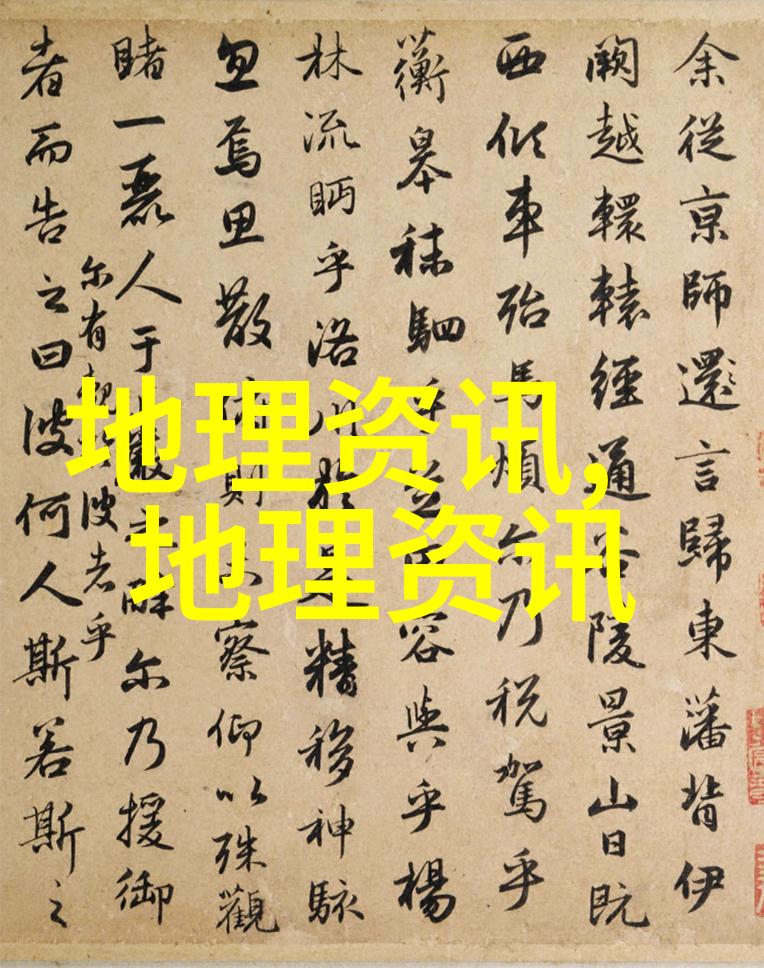 余從京師還言歸東藩背伊
闕越轘轅經通谷陵景山日既
西傾車殆馬煩尔乃税駕乎
蘅皋秣駟乎芝田容與乎楊
林流眄乎洛川於是精移神駭
忽焉思散俯則未察仰以殊觀
睹一麗人于巖之畔尔乃援御
尔有彼者乎
者而告之曰彼何人斯若斯之
地理资讯,
地理资讯